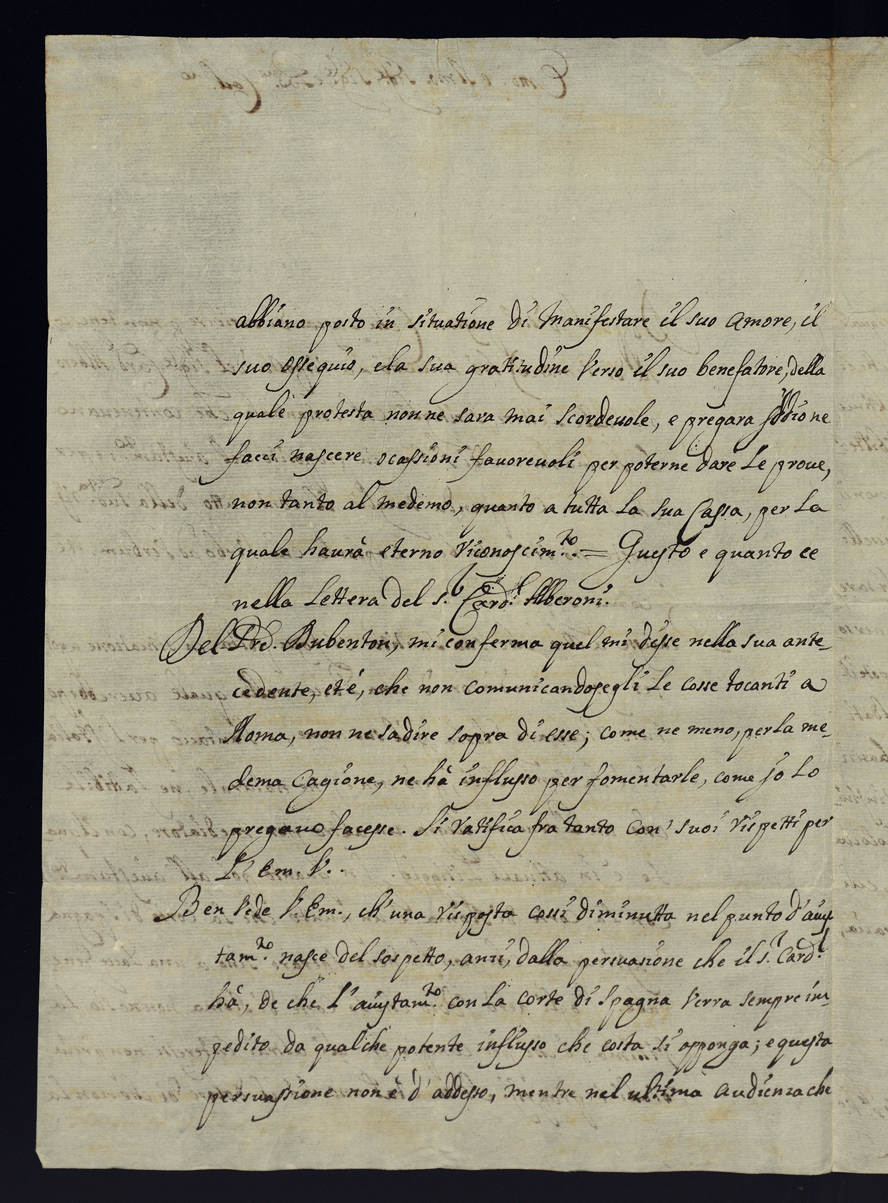 abbiano posto in situatione di Manifestare il suo Amore, il
suo ossequio, e la sua gratitudine verso il suo benefatore, della
quale protesta non ne sara mai scordevole, e pregara Iddio ne
facci nascere ocassioni favorevoli per poterne dare le prove,
non tanto al medemo, quanto a tutta la sua Cassa, per la
quale haurà eterno riconoscim.to = Questo e quanto ce
nella Lettera del S.r Card.l Alberoni.
Del Prè. Dubenton, mi conferma quel mi disse nella sua ante-
cedente, et é, che non comunicandosegli le cosse tocanti a
Roma, non ne sa dire sopra di esse; come ne meno, per la me-
dema cagione, ne hà influsso per fomentarle, come jo lo
pregavo facesse. Si ratifica fra tanto con' suoi rispetti per
L' Em. V.
Ben vede V. Em., ch'una risposta cossi diminutta nel punto d'aiys-
tam.to nasce del sospetto, anzi, dalla persuasione che il S.r Card.l
hà, de che l'aiystam.to con la corte di Spagna verra sempre im-
pedito da qualche potente influsso che costa si opponga; e questa
persuassione non è d'addesso, mentre nel ultima audienza che